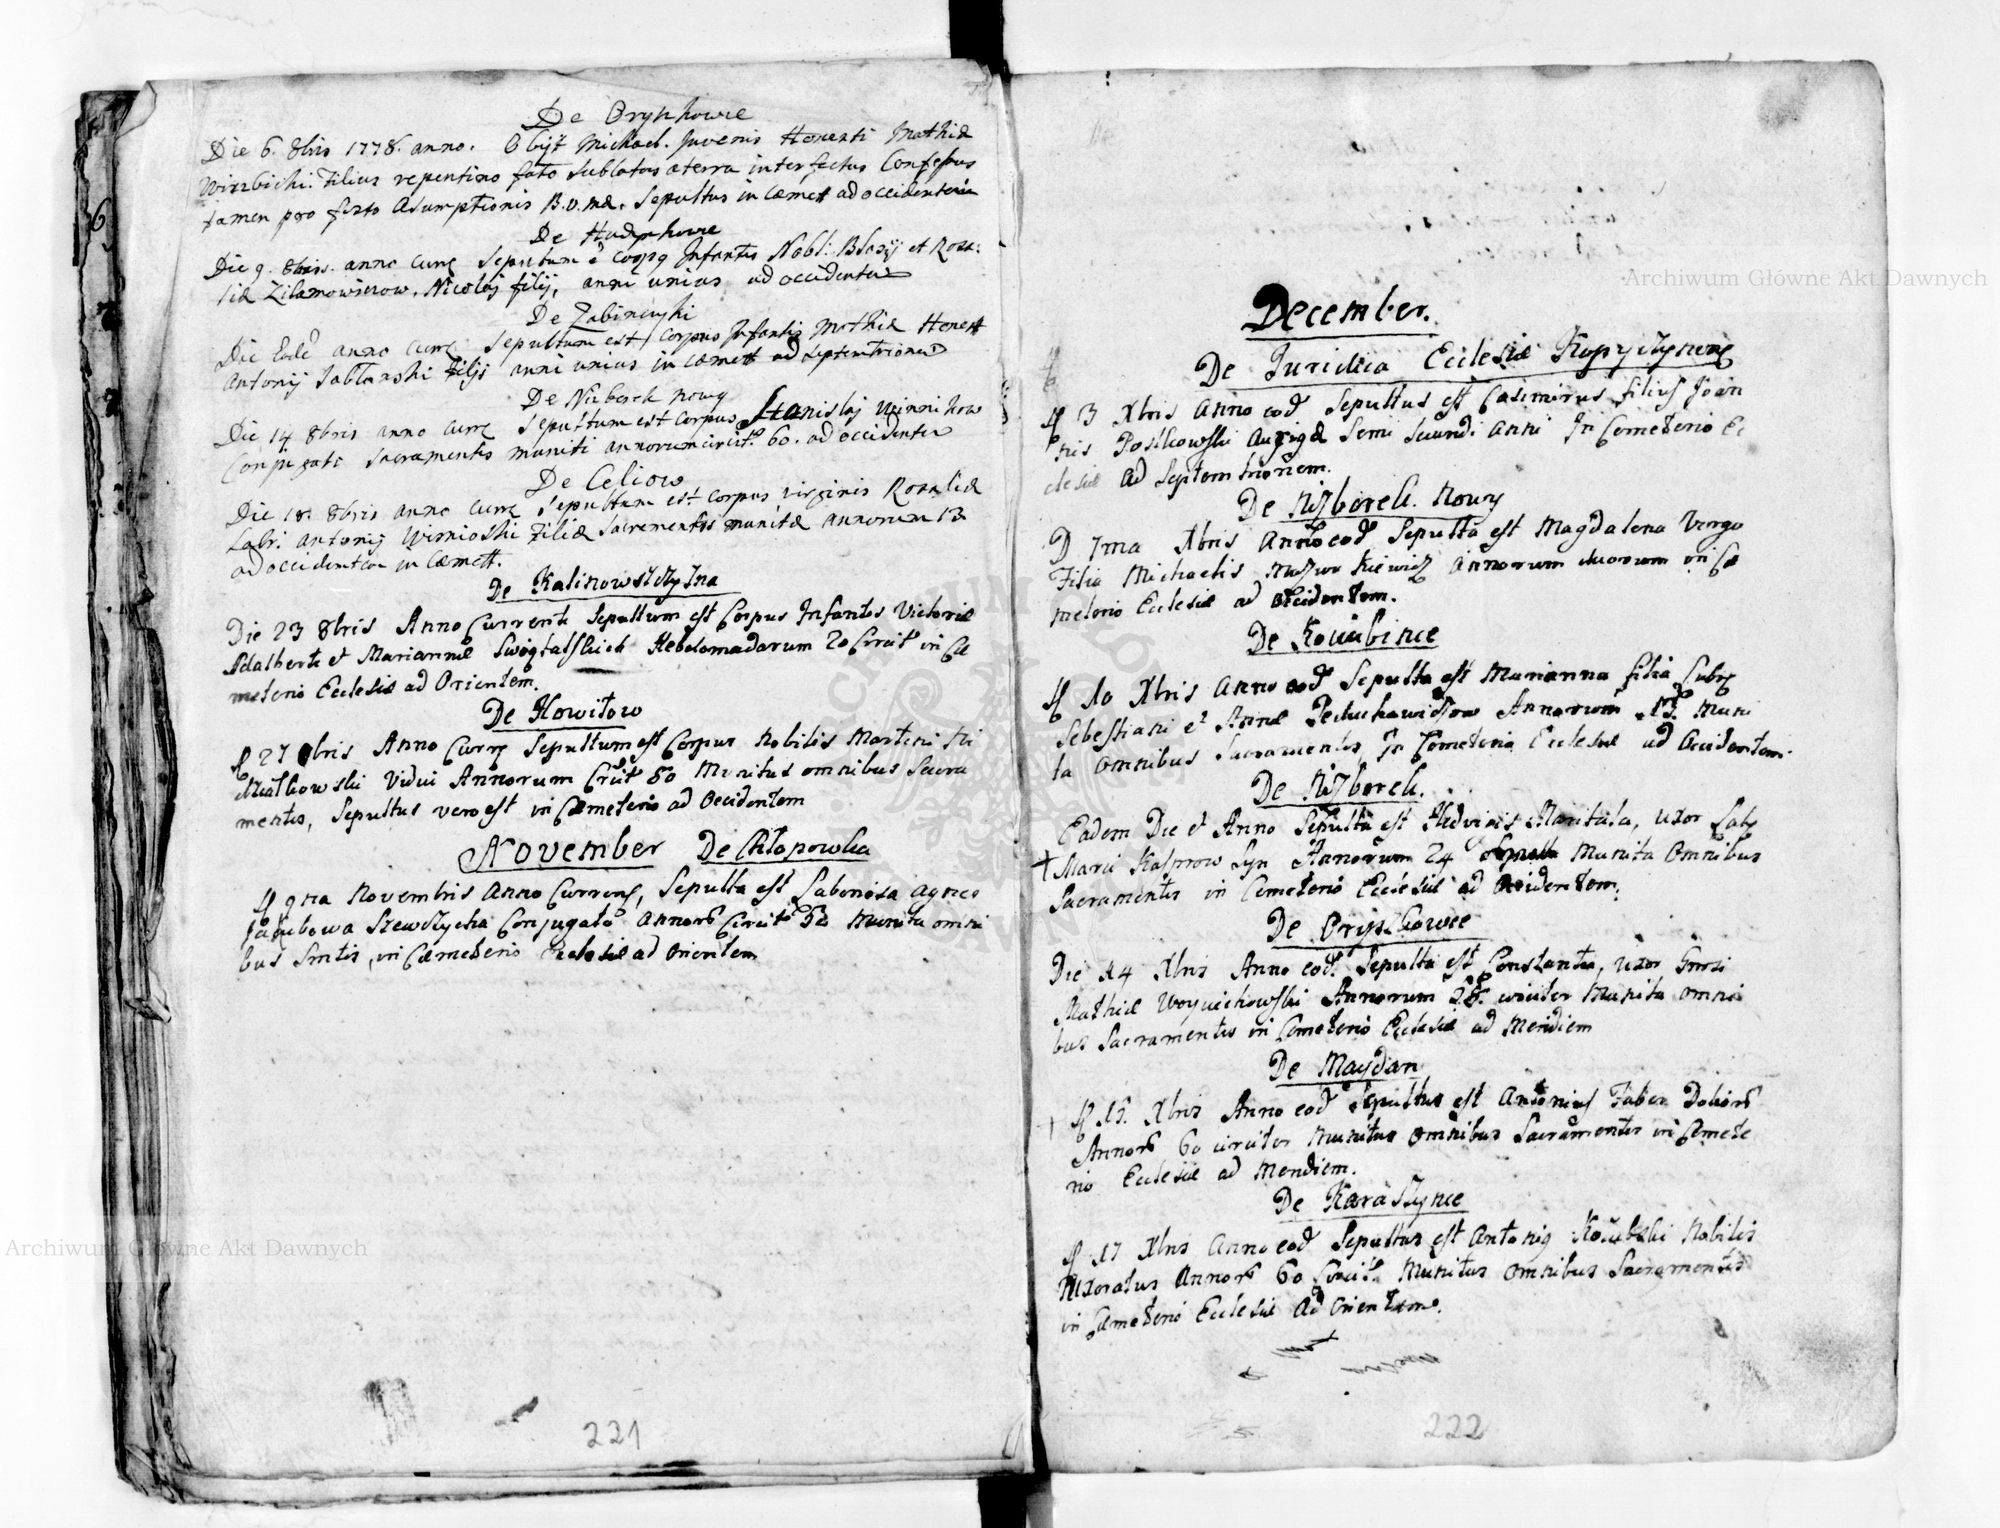 De Oryszkowce
Die 6. 8bris 1778. anno. Obijt Michael. Juvenis Honesti Mathiæ
Wirzbicki. Filius repentino fato sublatus a terra interfectus Confessus
tamen pro festo Asumptionis B.V.Mæ. Sepultus in Cæmett ad occidentem
De Hadynkowce
Die 9. 8bris. anno curr Sepultum e corpg Infantis Nobl: Blasij et Rosa:
liæ Nicolaj filij, anni unius ad occidentem
De Zabinczyki
Die Eadē anno curr Sepultum est corpus Infantis Mathiæ Honest
Antonij Jablonski Filij anni unius in Cæmett ad septemtrionem
De Nizborek nowy
Die 14 8bris anno curr Sepultum est corpus Stanislaj Winnikow
Conjugati Sacramentis muniti annorum circit. 60. ad occidentem
De Celiow
Die 18. 8bris anno curr Sepultum est corpus virginis Rosaliæ
Labr. Antonij Filiæ Sacramentis munitæ annorum 13
ad occidentem in Cæmett.
De Kalinowszczyzna
Die 23 8bris Anno Currente Sepultum est Corpus Infantis Victoriæ
Adalberti et Mariannæ Hebdomadarum 20 Circit in Cæ
meterio Ecclesiæ ad Orientem.
De Howitow
D 27 8bris Anno Curr Sepultum est Corpus Nobilis Martini Ni
Vidui Annorum Circit 80 Munitus omnibus Sacra
mentis, Sepultus vero est in Cæmeterio ad Occidentem
November De Chłopowka
D 9na Novembris Anno Currenẽ, Sepulta est Laboriosa Agnes
Jakubowa Szewczycha Conjugata Annorũ Circit 50 Munita omni
bus Smtis, in Cæmeterio Ecclesiæ ad Orientem
221
December.
De Juridica Ecclesiæ Kopyczynceñ
D 3 Xbris Anno eod Sepultus est Casimirus Filius Joan
nis Aurigæ Semi Secundi Anni In Cemeterio Ec
clesiæ ad Septemtrionem.
De Niżborek. Nowy
D 7ma Xbris Anno eod Sepulta est Magdalena Virgo
Filia Michaelis Annorum duorum in Cæ
meterio Ecclesiæ ad Occidentem.
De Kociubince
D 10 Xbris Anno eod Sepulta est Marianna filia Labr
Sebestiani et Annæ Annorum 13. Muni
ta Omnibus Sacramentis, In Cemeterio Ecclesiæ ad Occidentem.
De Niżborek.
Eadem Die et Anno Sepulta est Hedvigis Maritata, Uxor Labr
Marci Kasprow Syn Annorum 24 Munita Omnibus
Sacramentis in Cemeterio Ecclesiæ ad Occidentem.
De Oryszkowce
Die 14 Xbris Anno eod. Sepulta est Constantia, Uxor Grosi
Mathiæ Woyciechowski Annorum 28. circiter Munita omni
bus Sacramentis in Cemeterio Ecclesiæ ad Meridiem
De Maydan
D 15. Xbris Anno eod Sepultus est Antonius Faber Doliorũ
Annorũ 60 circiter Munitus Omnibus Sacramentis in Cemete
rio Ecclesiæ ad Meridiem.
De Karaszynce
D 17 Xbris Anno eod Sepultus est Antonig Kociubski Nobilis
Uxoratus Annorũ 60 Circit. Munitus Omnibus Sacramentis
in Cæmeterio Ecclesiæ Ad Orientem.
222
Archiwum Główne Akt Dawnych
Archiwum Główne Akt Dawnych